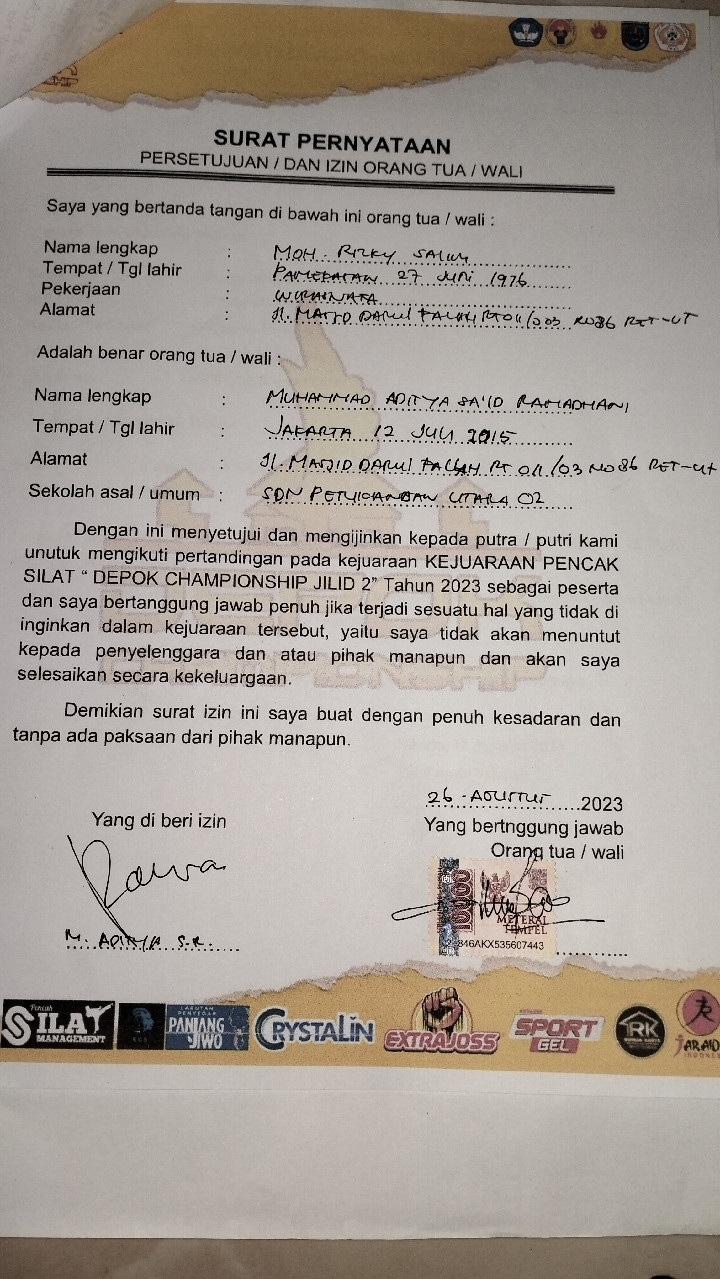 SURAT PERNYATAAN
PERSETUJUAN / DAN IZIN ORANG TUA / WALI
Saya yang bertanda tangan di bawah ini orang tua / wali :
Nama lengkap : MOH. RIZKY SALIM
Tempat / Tgl lahir : PAMEKASAN 27 JUNI 1976
Pekerjaan : WIRASWASTA
Alamat : Jl. MASJID DARUL FALAH RT 011/003 NO 86 PET-UT
Adalah benar orang tua / wali :
Nama lengkap : MUHAMMAD ADITYA SA'ID RAMADHANI
Tempat / Tgl lahir : JAKARTA 12 JULI 2015
Alamat : Jl. MASJID DARUL FALLAH RT 011/03 NO 86 PET-UT
Sekolah asal / umum : SDN PETUKANGAN UTARA 02
Dengan ini menyetujui dan mengijinkan kepada putra / putri kami
unutuk mengikuti pertandingan pada kejuaraan KEJUARAAN PENCAK
SILAT “ DEPOK CHAMPIONSHIP JILID 2” Tahun 2023 sebagai peserta
dan saya bertanggung jawab penuh jika terjadi sesuatu hal yang tidak di
inginkan dalam kejuaraan tersebut, yaitu saya tidak akan menuntut
kepada penyelenggara dan atau pihak manapun dan akan saya
selesaikan secara kekeluargaan.
Demikian surat izin ini saya buat dengan penuh kesadaran dan
tanpa ada paksaan dari pihak manapun.
26 - AGUSTUS 2023
Yang di beri izin
Yang bertnggung jawab
Orang tua / wali
10000
METERAI
TEMPEL
846AKX535607443
M. ADITYA S.R.
Pencak
SILAT
MANAGEMENT
LARUTAN
PENYEGAR
PANJANG
JIWO
CRYSTALIN
EXTRAJOSS
SPORT
GEL
RK